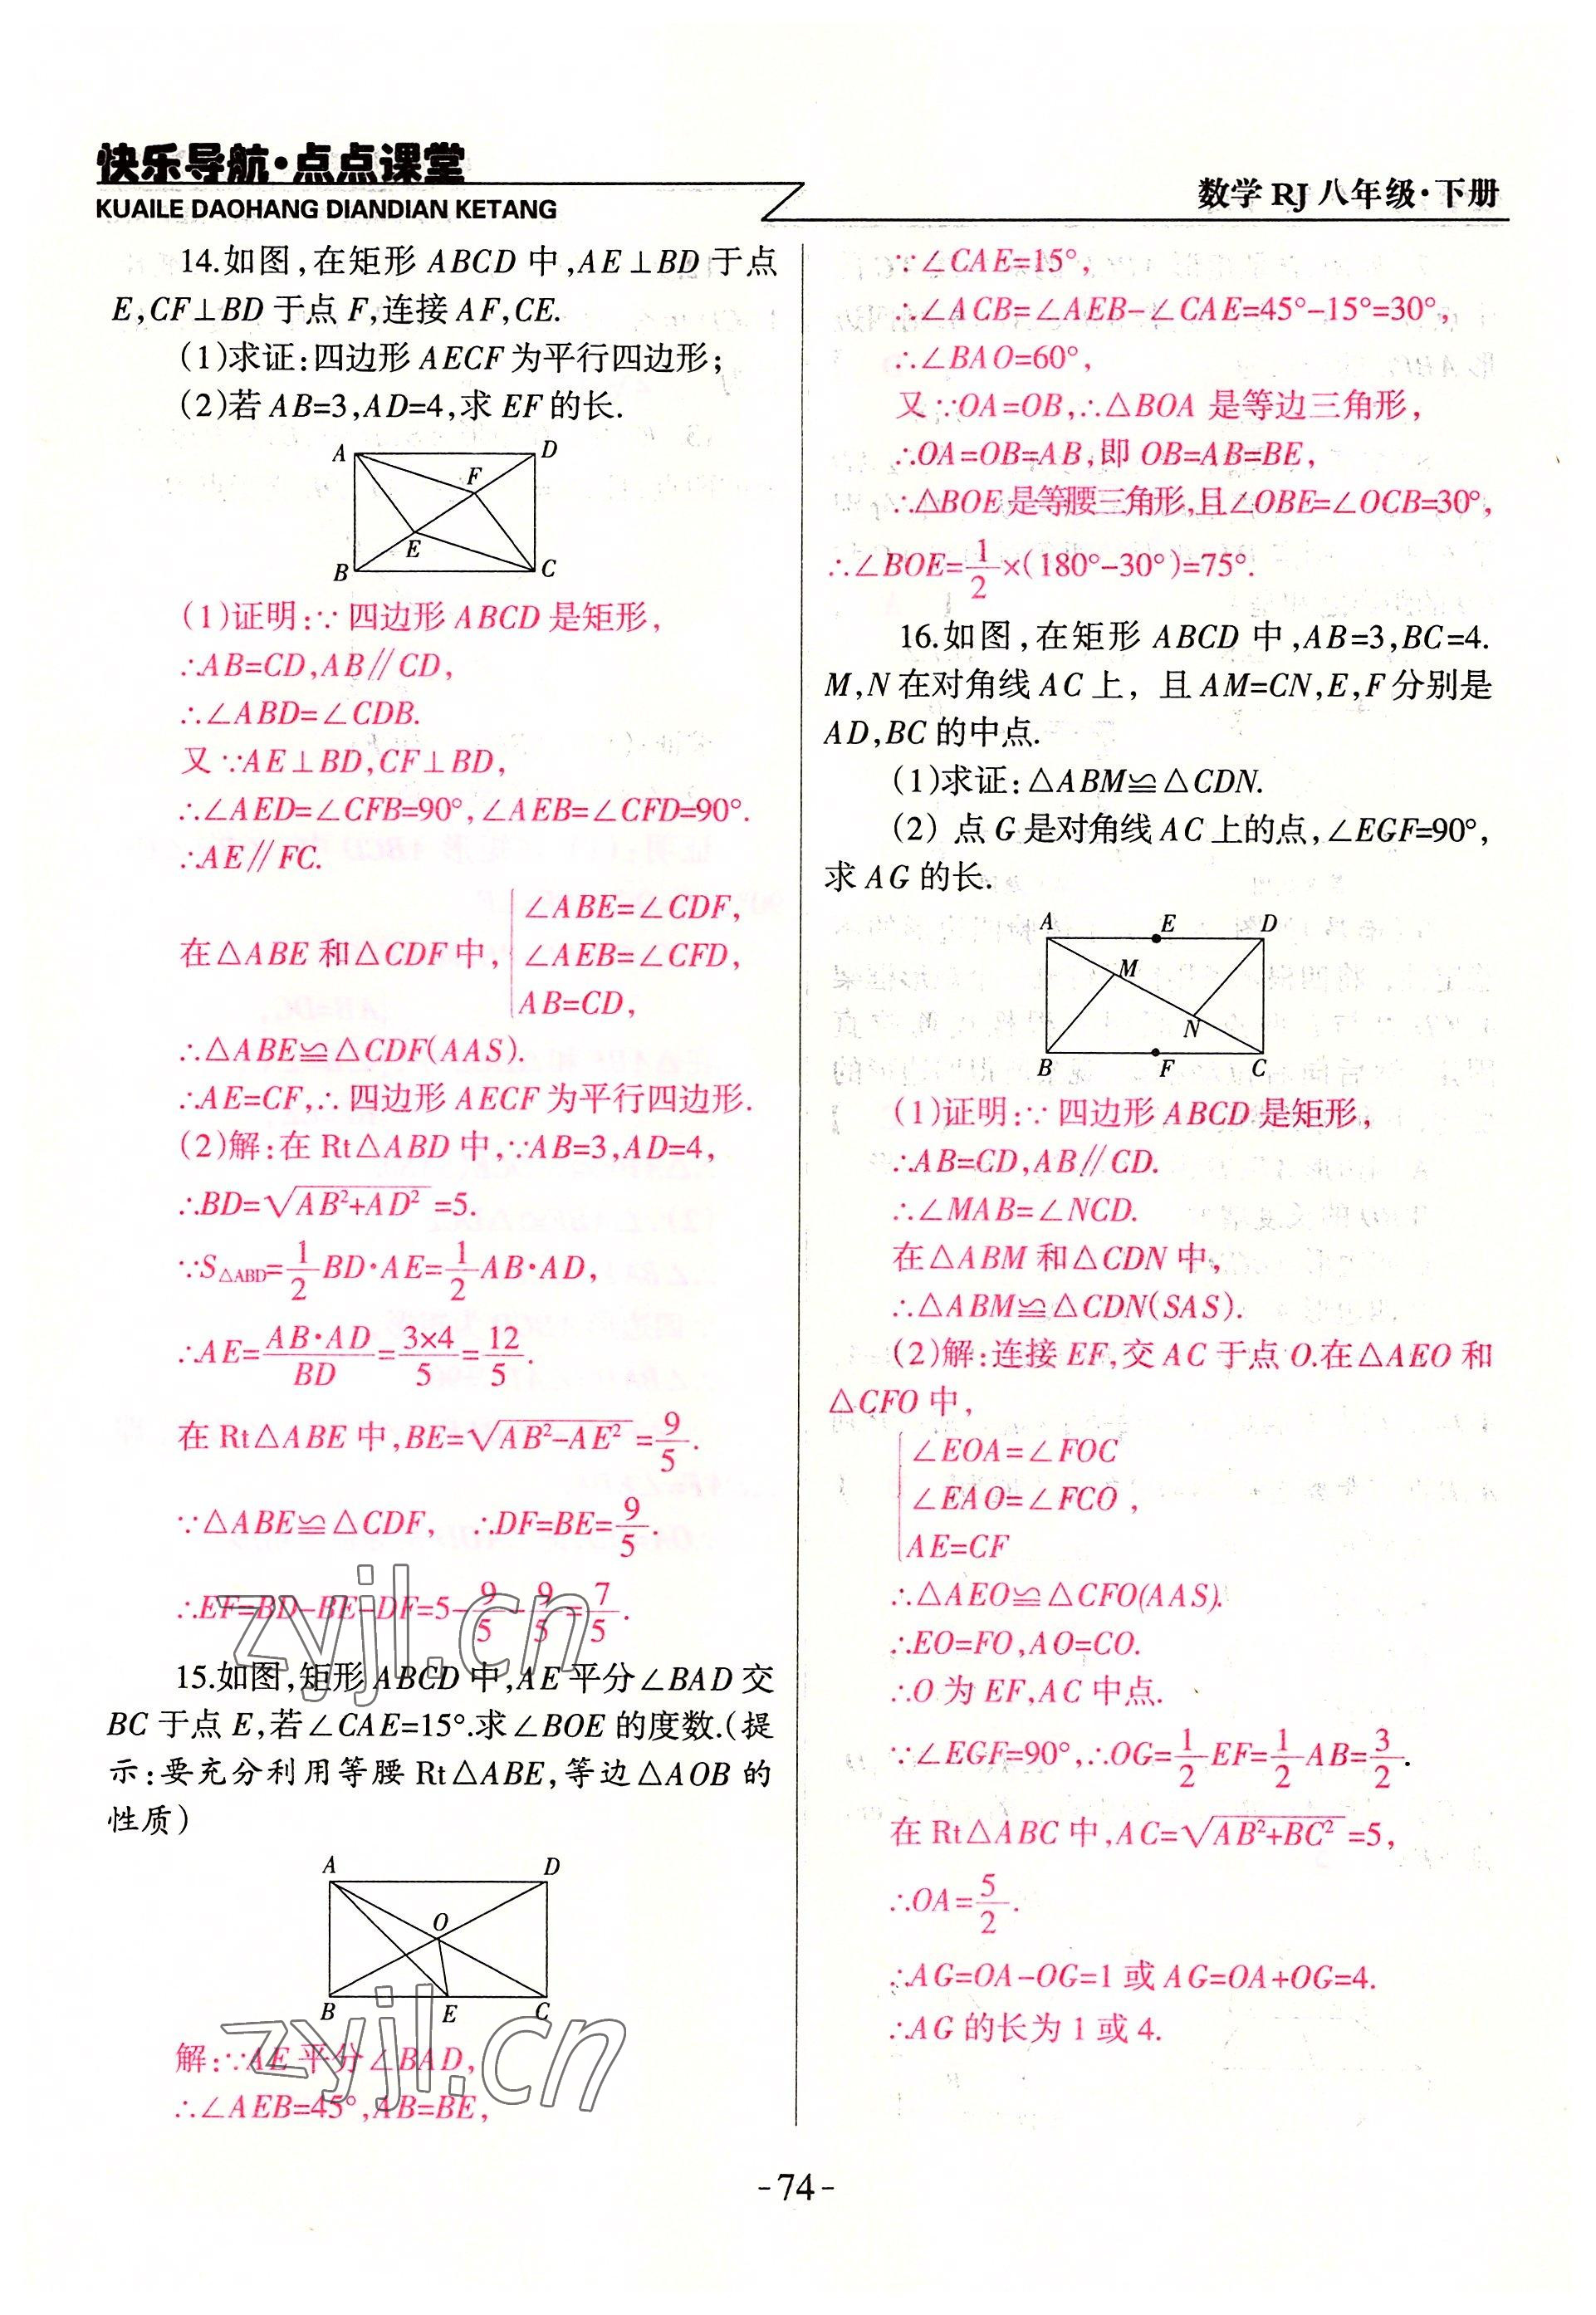 快乐导航·点点课堂
KUAILE DAOHANG DIANDIAN KETANG
数学 RJ 八年级·下册
14.如图,在矩形 ABCD 中,AE⊥BD 于点
E,CF⊥BD 于点 F,连接 AF,CE.
(1)求证:四边形 AECF 为平行四边形;
(2)若 AB=3,AD=4,求 EF 的长.
A D
F
E
B C
(1)证明:∵四边形 ABCD 是矩形,
∴AB=CD,AB∥CD,
∴∠ABD=∠CDB.
又∵AE⊥BD,CF⊥BD,
∴∠AED=∠CFB=90°,∠AEB=∠CFD=90°.
∴AE∥FC.
∠ABE=∠CDF,
在△ABE 和△CDF 中, ∠AEB=∠CFD,
AB=CD,
∴△ABE≌△CDF(AAS).
∴AE=CF,∴四边形 AECF 为平行四边形.
(2)解:在 Rt△ABD 中,∵AB=3,AD=4,
∴BD=√(AB²+AD²)=5.
∵S△ABD=1/2 BD·AE=1/2 AB·AD,
∴AE=AB·AD/BD=3×4/5=12/5.
在 Rt△ABE 中,BE=√(AB²-AE²)=9/5.
∵△ABE≌△CDF, ∴DF=BE=9/5.
∴EF=BD-BE-DF=5-9/5-9/5=7/5.
15.如图,矩形 ABCD 中,AE 平分∠BAD 交
BC 于点 E,若∠CAE=15°.求∠BOE 的度数.(提
示:要充分利用等腰 Rt△ABE,等边△AOB 的
性质)
A D
O
B E C
解:∵AE 平分∠BAD,
∴∠AEB=45°,AB=BE,
∵∠CAE=15°,
∴∠ACB=∠AEB-∠CAE=45°-15°=30°,
∴∠BAO=60°,
又∵OA=OB,∴△BOA 是等边三角形,
∴OA=OB=AB,即 OB=AB=BE,
∴△BOE 是等腰三角形,且∠OBE=∠OCB=30°,
∴∠BOE=1/2×(180°-30°)=75°.
16.如图,在矩形 ABCD 中,AB=3,BC=4.
M,N 在对角线 AC 上,且 AM=CN,E,F 分别是
AD,BC 的中点.
(1)求证:△ABM≌△CDN.
(2)点 G 是对角线 AC 上的点,∠EGF=90°,
求 AG 的长.
A E D
M
N
B F C
(1)证明:∵四边形 ABCD 是矩形,
∴AB=CD,AB∥CD.
∴∠MAB=∠NCD.
在△ABM 和△CDN 中,
∴△ABM≌△CDN(SAS).
(2)解:连接 EF,交 AC 于点 O.在△AEO 和
△CFO 中,
∠EOA=∠FOC
∠EAO=∠FCO,
AE=CF
∴△AEO≌△CFO(AAS).
∴EO=FO,AO=CO.
∴O 为 EF,AC 中点.
∵∠EGF=90°,∴OG=1/2 EF=1/2 AB=3/2.
在 Rt△ABC 中,AC=√(AB²+BC²)=5,
∴OA=5/2.
∴AG=OA-OG=1 或 AG=OA+OG=4.
∴AG 的长为 1 或 4.
zyjl.cn
zyjl.cn
-74-